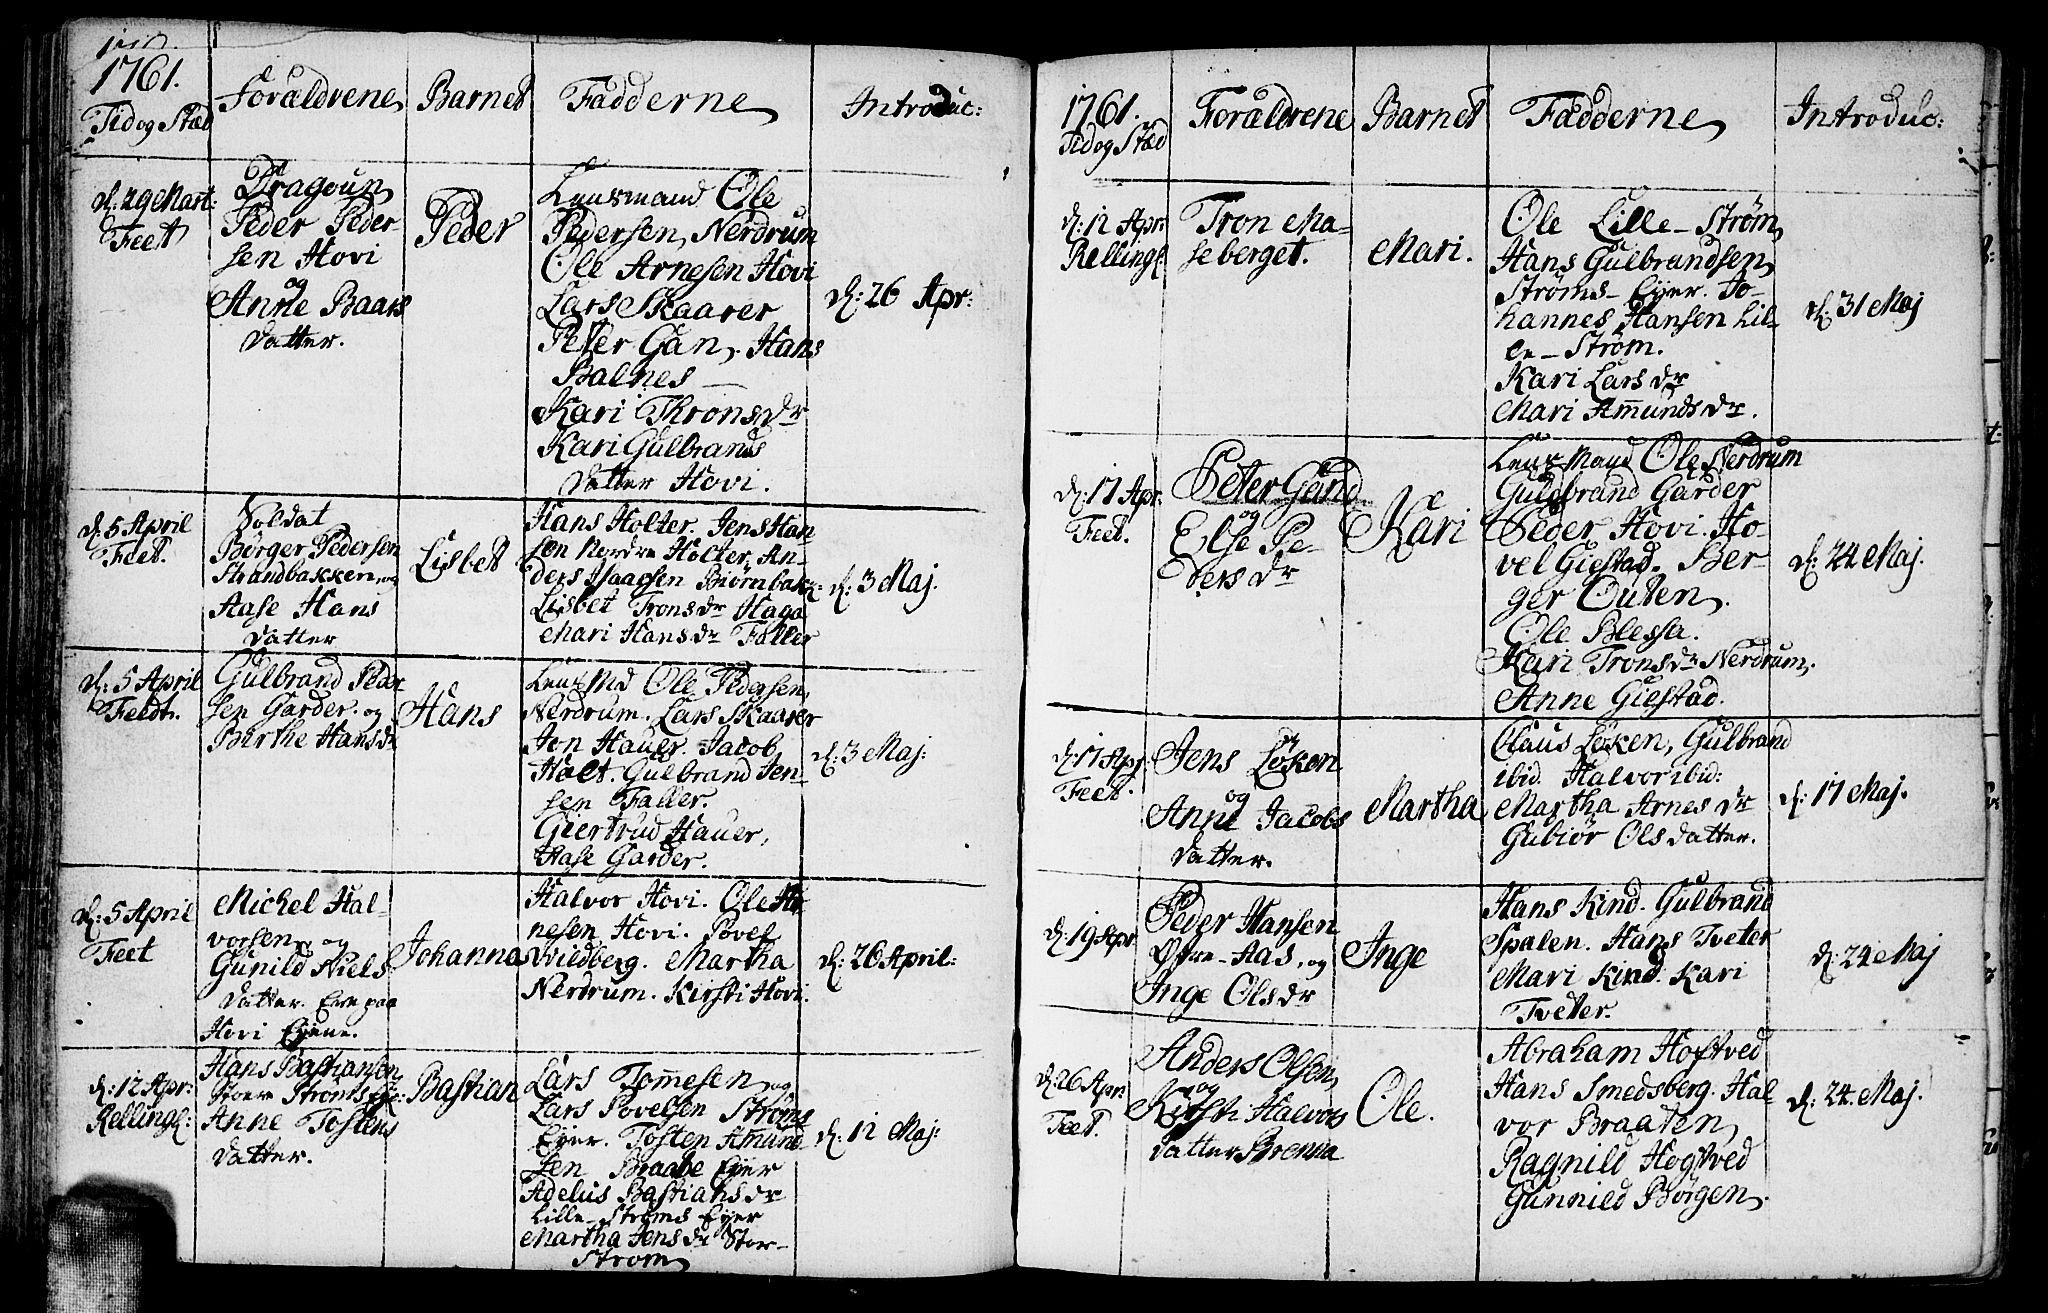 1761.
Tid og Stæd
Forældrene
Barnet
Fadderne
Introduc:
d: 29 Mart:
Feet
Dragoun
Peder Peder-
sen Hovi
og
Anne Baars
datter.
Peder
Lensmand Ole
Pedersen Nerdrum
Ole Arnesen Hovi
Lars Skaarer
Peter Gan. Hans
Balnes
Kari Throns dr
Kari Gulbrands
datter Hovi.
d: 26 Apr:
d: 5 April
Feet.
Soldat
Børger Pedersen
Strandbakken, og
Aase Hans
datter
Lisbet
Hans Holter. Jens Han-
sen Nordre Holter, An-
ders Isaacsen Biørnbak:
Lisbet Trons dr Haga
Mari Hans dr Faller
d: 3 Maj.
d: 5 April
Feldt.
Gulbrand Peder
sen Garder. og
Birthe Hans dr
Hans
Lens Md Ole Pedersen,
Nerdrum. Lars Skaarer
Jon Hauer. Jacob
Holt. Gulbrand Jen-
sen Faller.
Giertrud Hauer,
Aase Garder.
d: 3 Maj:
d: 5 April
Feet
Michel Hal-
vorsen og
Gunild Niels
datter. Ere paa
Hovi Eyene.
Johanna
Halvor Hovi. Ole Ar
nesen Hovi. Povel
Vildberg. Martha
Nerdrum. Kirsti Hovi.
d: 26 April:
d: 12 Apr:
Rellingf:
Hans Bastiansen
Stoer Strøms Eje:
Anne Tostens
datter.
Bastian
Lars Tom̅esen og
Lars Povelsen Strøms
Eyer. Tosten Amund
sen Braate Eyer
Adelus Bastians dr
Lille-Strøms Eyer
Martha Jens dr Stor-
strøm
d: 12 Maj:
1761.
Tid og Stæd
Forældrene
Barnet
Fadderne
Introduc:
d: 12 Apr:
Rellingf
Tron Ma-
seberget.
Mari.
Ole Lille-Strøm,
Hans Gulbrandsen
Strøms-Eyer. Jo-
hannes Hansen Lil-
le-Strøm.
Kari Lars dr
Mari Am̅unds dr.
d: 31 Maj
d: 17 Apr.
Feet.
Peter Gand
og
Else Pe-
ders dr
Kari
Lens Mand Ole Nerdrum
Guldbrand Garder
Peder Hovi. Ho-
vel Giestad. Ber-
ger Outen.
Ole Blessa.
Kari Trons dr Nerdrum,
Anne Giestad.
d: 24 Maj.
d: 17 Apr
Feet.
Jens Løken
og
Anne Jacobs
datter.
Martha
Claus Løken, Gulbrand
ibid. Halvor ibid:
Martha Arnes dr
Gubiør Olsdatter.
d: 17 Maj.
d: 19 Apr
Peder Hansen
Øfre-Aas, og
Inge Ols dr
Inge
Hans Kind. Gulbrand
Spalen. Hans Tveter
Mari Kind. Kari
Tveter.
d: 24 Maj
d: 26 Apr:
Feet.
Anders Olsen
og
Kirsti Halvors
datter Brenna
Ole.
Abraham Hogtved
Hans Smedsberg. Hal-
vor Braaten,
Ragnild Hogtved
Gunnild Børgen.
d: 24. Maj.